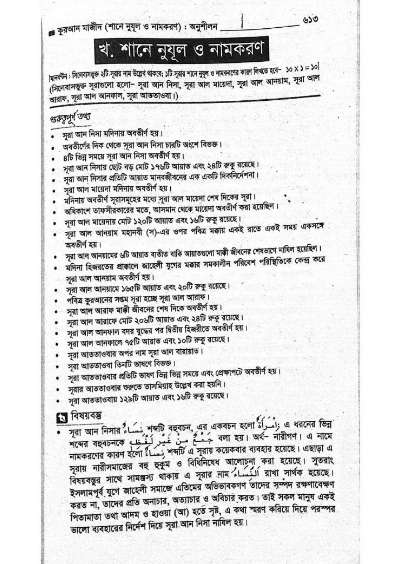 ■ কুরআন মাজীদ (শানে নুযূল ও নামকরণ) : অনুশীলন ৬১৩
খ. শানে নুযূল ও নামকরণ
[মানবণ্টন : সিলেবাসভুক্ত ২টি সূরার নাম উল্লেখ থাকবে; ১টি সূরার শানে নুযূল ও নামকরণের কারণ লিখতে হবে- ১০ X ১ = ১০]
(সিলেবাসভুক্ত সূরাগুলো হলো- সূরা আন নিসা, সূরা আল মায়েদা, সূরা আল আনয়াম, সূরা আল
আরাফ, সূরা আল আনফাল, সূরা আততাওবা।)
গুরুত্বপূর্ণ তথ্য
• সূরা আন নিসা মদিনায় অবতীর্ণ হয়।
• অবতীর্ণের দিক থেকে সূরা আন নিসা চারটি অংশে বিভক্ত।
• ৪টি ভিন্ন সময়ে সূরা আন নিসা অবতীর্ণ হয়।
• সূরা আন নিসায় ছোট বড় মোট ১৭৬টি আয়াত এবং ২৪টি রুকু রয়েছে।
• সূরা আন নিসার প্রতিটি আয়াত মানবজীবনের এক একটি দিকনির্দেশনা।
• সূরা আল মায়েদা মদিনায় অবতীর্ণ হয়।
• মদিনায় অবতীর্ণ সূরাসমূহের মধ্যে সূরা আল মায়েদা শেষ দিকের সূরা।
• অধিকাংশ তাফসীরকারের মতে, আসমান থেকে মায়েদা অবতীর্ণ করা হয়েছিল।
• সূরা আল মায়েদায় মোট ১২০টি আয়াত এবং ১৬টি রুকু রয়েছে।
• সূরা আল আনয়াম মহানবী (স)-এর ওপর পবিত্র মক্কায় একই রাতে একই সময় একসঙ্গে
অবতীর্ণ হয়।
• সূরা আল আনয়ামের ৬টি আয়াত ব্যতীত বাকি আয়াতগুলো মাক্কী জীবনের শেষভাগে নাযিল হয়েছিল।
• মদিনা হিজরতের প্রাক্কালে জাহেলী যুগের মক্কার সমকালীন পরিবেশ পরিস্থিতিকে কেন্দ্র করে
সূরা আল আনয়াম অবতীর্ণ হয়।
• সূরা আল আনয়ামে ১৬৫টি আয়াত এবং ২০টি রুকু রয়েছে।
• পবিত্র কুরআনের সপ্তম সূরা হচ্ছে সূরা আল আরাফ।
• সূরা আল আরাফ মাক্কী জীবনের শেষ দিকে অবতীর্ণ হয়।
• সূরা আল আরাফে মোট ২০৬টি আয়াত এবং ২৪টি রুকু রয়েছে।
• সূরা আল আনফাল বদর যুদ্ধের পর দ্বিতীয় হিজরীতে অবতীর্ণ হয়।
• সূরা আল আনফালে ৭৫টি আয়াত এবং ১০টি রুকু রয়েছে।
• সূরা আততাওবার অপর নাম সূরা আল বারায়াত।
• সূরা আততাওবা তিনটি ভাষণে বিভক্ত।
• সূরা আততাওবার প্রতিটি ভাষণ ভিন্ন ভিন্ন সময়ে এবং প্রেক্ষাপটে অবতীর্ণ হয়।
• সূরা আততাওবার শুরুতে তাসমিয়াহ উল্লেখ করা হয়নি।
• সূরা আততাওবায় ১২৯টি আয়াত এবং ১৬টি রুকু রয়েছে।
বিষয়বস্তু
• সূরা আন নিসার نِسَاءٌ শব্দটি বহুবচন, এর একবচন হলো اِمْرَأَةٌ। এ ধরনের ভিন্ন
শব্দের বহুবচনকে جَمْعٌ مِنْ غَيْرِ لَفْظِهِ বলা হয়। অর্থ- নারীগণ। এ নামে
নামকরণের কারণ হলো نِسَاءٌ শব্দটি এ সূরায় কয়েকবার ব্যবহার হয়েছে। এছাড়া এ
সূরায় নারীসমাজের বহু হুকুম ও বিধিনিষেধ আলোচনা করা হয়েছে। সুতরাং
বিষয়বস্তুর সাথে সামঞ্জস্য থাকায় এ সূরার নাম النِّسَاءُ রাখা সার্থক হয়েছে।
ইসলামপূর্ব যুগে জাহেলী সমাজে এতিমের অভিভাবকগণ তাদের সম্পদ রক্ষণাবেক্ষণ
করত না, তাদের প্রতি অনাচার, অত্যাচার ও অবিচার করত। তাই সকল মানুষ একই
পিতামাতা তথা আদম ও হাওয়া (আ) হতে সৃষ্ট, এ কথা স্মরণ করিয়ে দিয়ে পরস্পর
ভালো ব্যবহারের নির্দেশ দিয়ে সূরা আন নিসা নাযিল হয়।